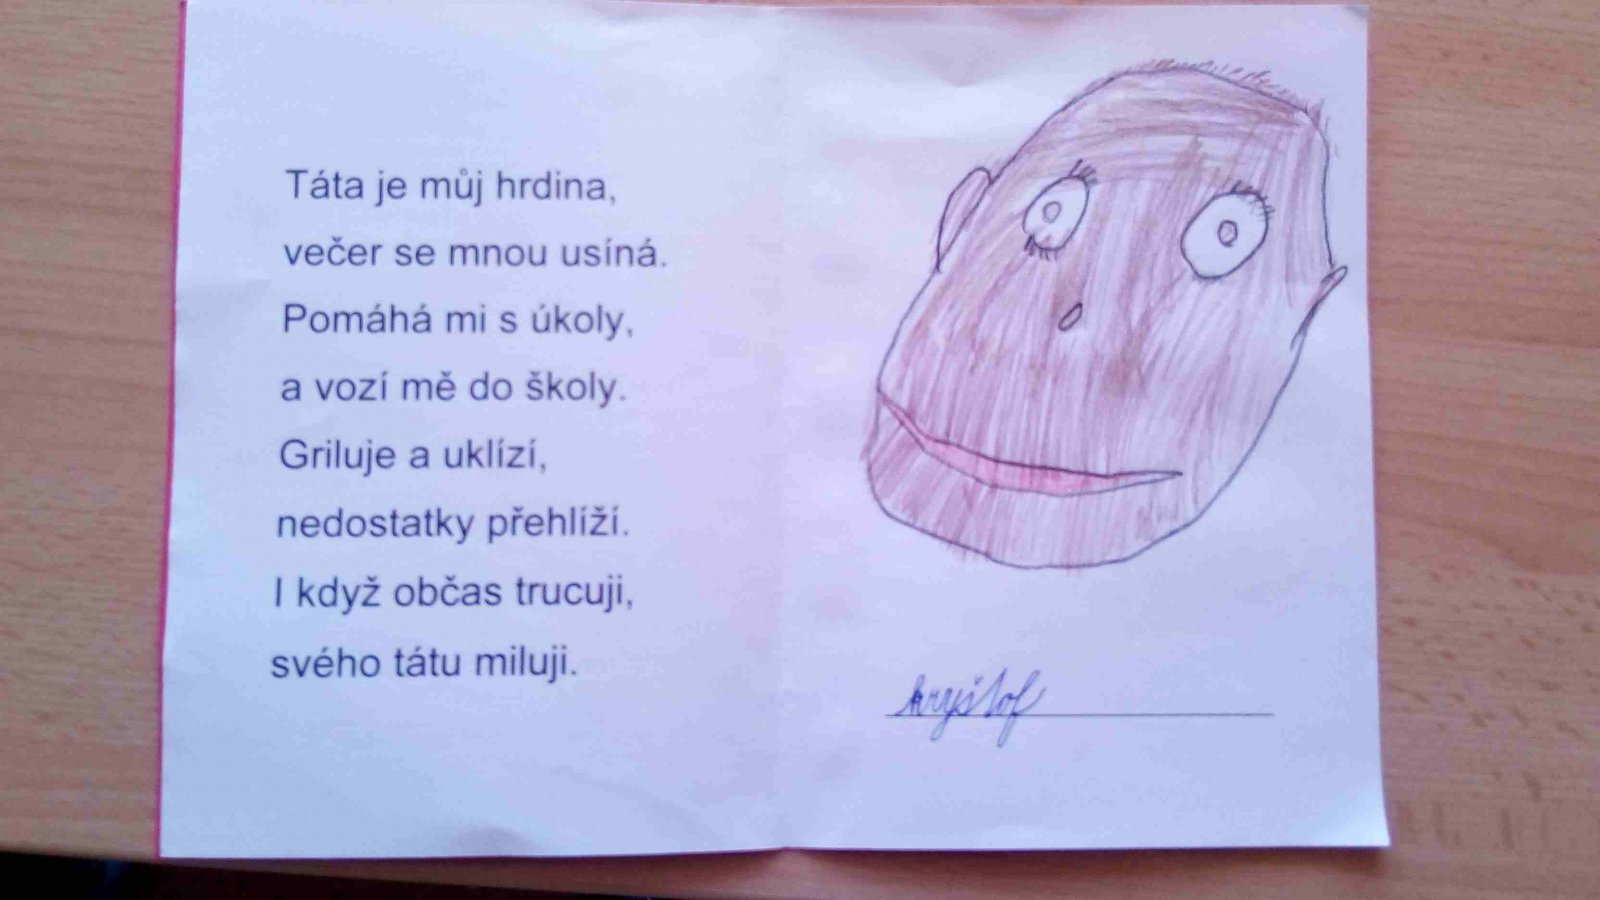 Táta je můj hrdina,
večer se mnou usíná.
Pomáhá mi s úkoly,
a vozí mě do školy.
Griluje a uklízí,
nedostatky přehlíží.
I když občas trucuji,
svého tátu miluji.
kryštof